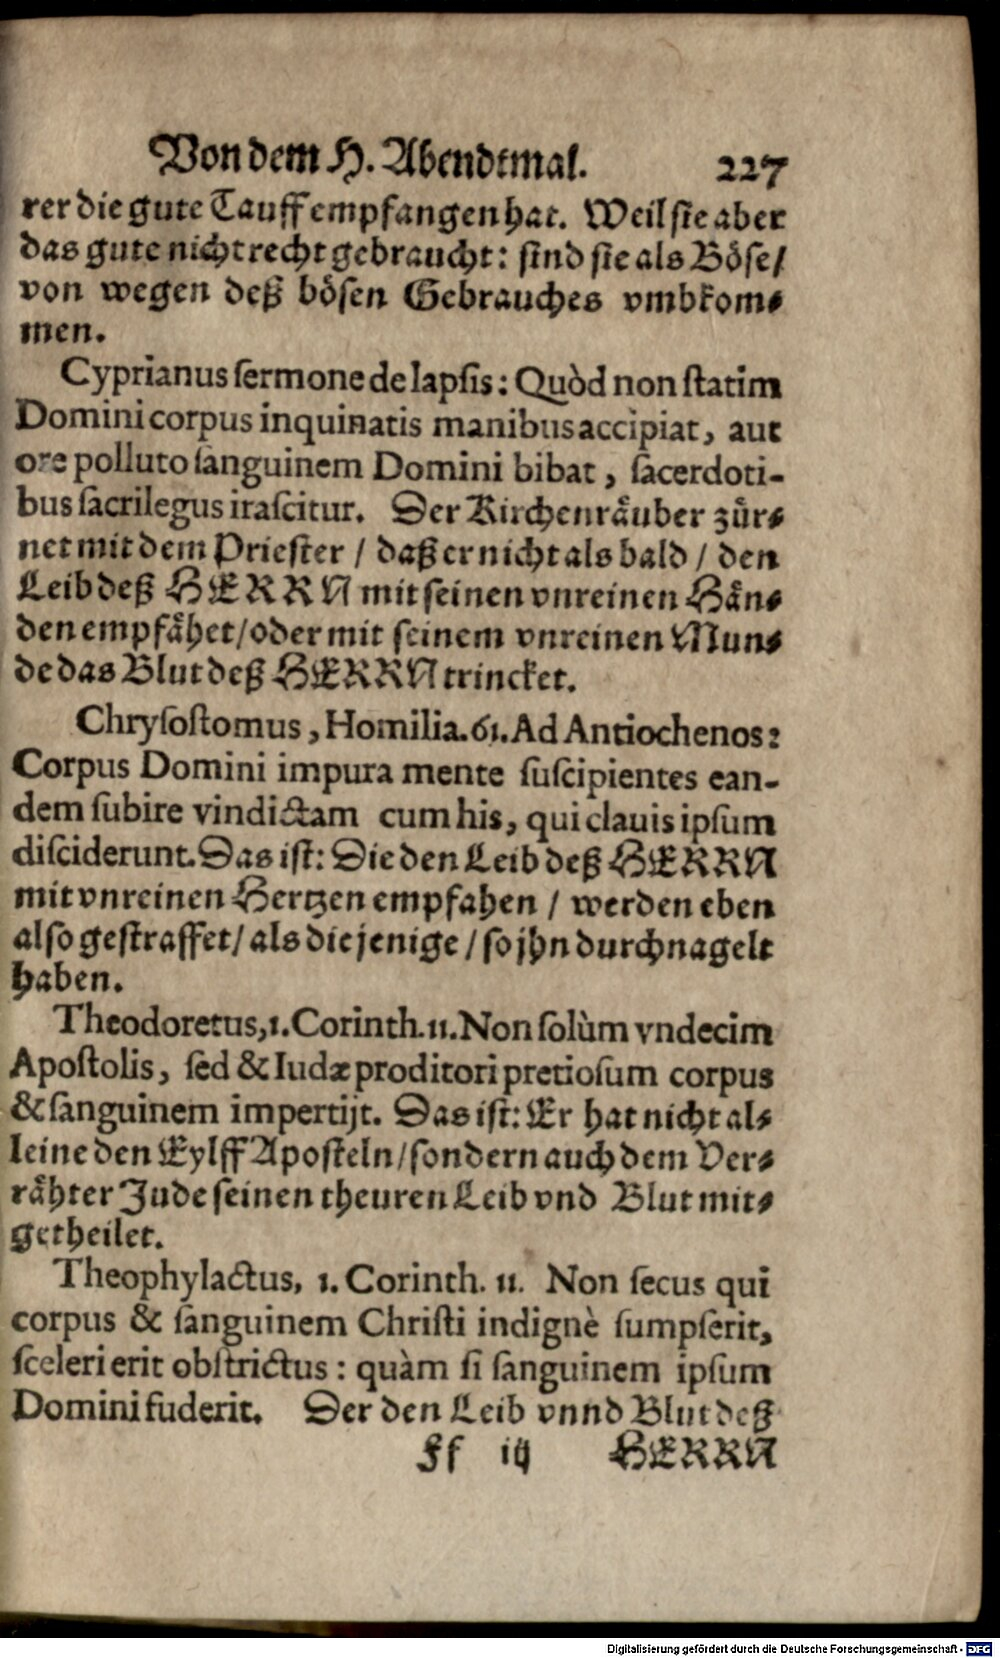 Von dem H. Abendtmal. 227
rer die gute Tauff empfangen hat. Weil sie aber
das gute nicht recht gebraucht: sind sie als Böse/
von wegen deß bösen Gebrauches vmbkom-
men.
Cyprianus sermone de lapsis: Quòd non statim
Domini corpus inquinatis manibus accipiat, aut
ore polluto sanguinem Domini bibat, sacerdoti-
bus sacrilegus irascitur. Der Kirchenråuber zůr-
net mit dem Priester / daß er nicht als bald / den
Leib deß HERRN mit seinen vnreinen Hån-
den empfåhet/oder mit seinem vnreinen Mun-
de das Blut deß HERRN trincket.
Chrysostomus, Homilia. 61. Ad Antiochenos:
Corpus Domini impura mente suscipientes ean-
dem subire vindictam cum his, qui clauis ipsum
disciderunt. Das ist: Die den Leib deß HERRN
mit vnreinen Hertzen empfahen / werden eben
also gestraffet/ als die jenige / so jhn durchnagelt
haben.
Theodoretus, 1. Corinth. 11. Non solùm vndecim
Apostolis, sed & Iudæ proditori pretiosum corpus
& sanguinem impertijt. Das ist: Er hat nicht al-
leine den Eylff Aposteln/sondern auch dem Ver-
råhter Jude seinen theuren Leib vnd Blut mit-
getheilet.
Theophylactus, 1. Corinth. 11. Non secus qui
corpus & sanguinem Christi indignè sumpserit,
sceleri erit obstrictus: quàm si sanguinem ipsum
Domini fuderit. Der den Leib vnnd Blut deß
Ff iij HERRN
Digitalisierung gefördert durch die Deutsche Forschungsgemeinschaft - DFG